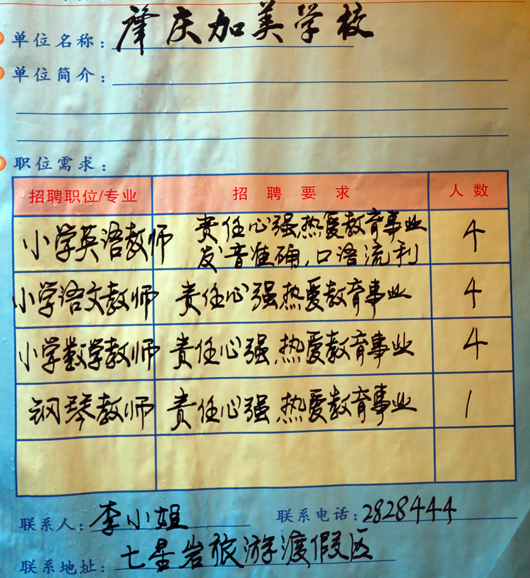 单位名称：肇庆加美学校
单位简介：
职位需求：
招聘职位/专业 招聘要求 人数
小学英语教师 责任心强热爱教育事业 4
发音准确，口语流利
小学语文教师 责任心强热爱教育事业 4
小学数学教师 责任心强，热爱教育事业 4
钢琴教师 责任心强，热爱教育事业 1
联系人：李小姐 联系电话：2828444
联系地址：七星岩旅游渡假区